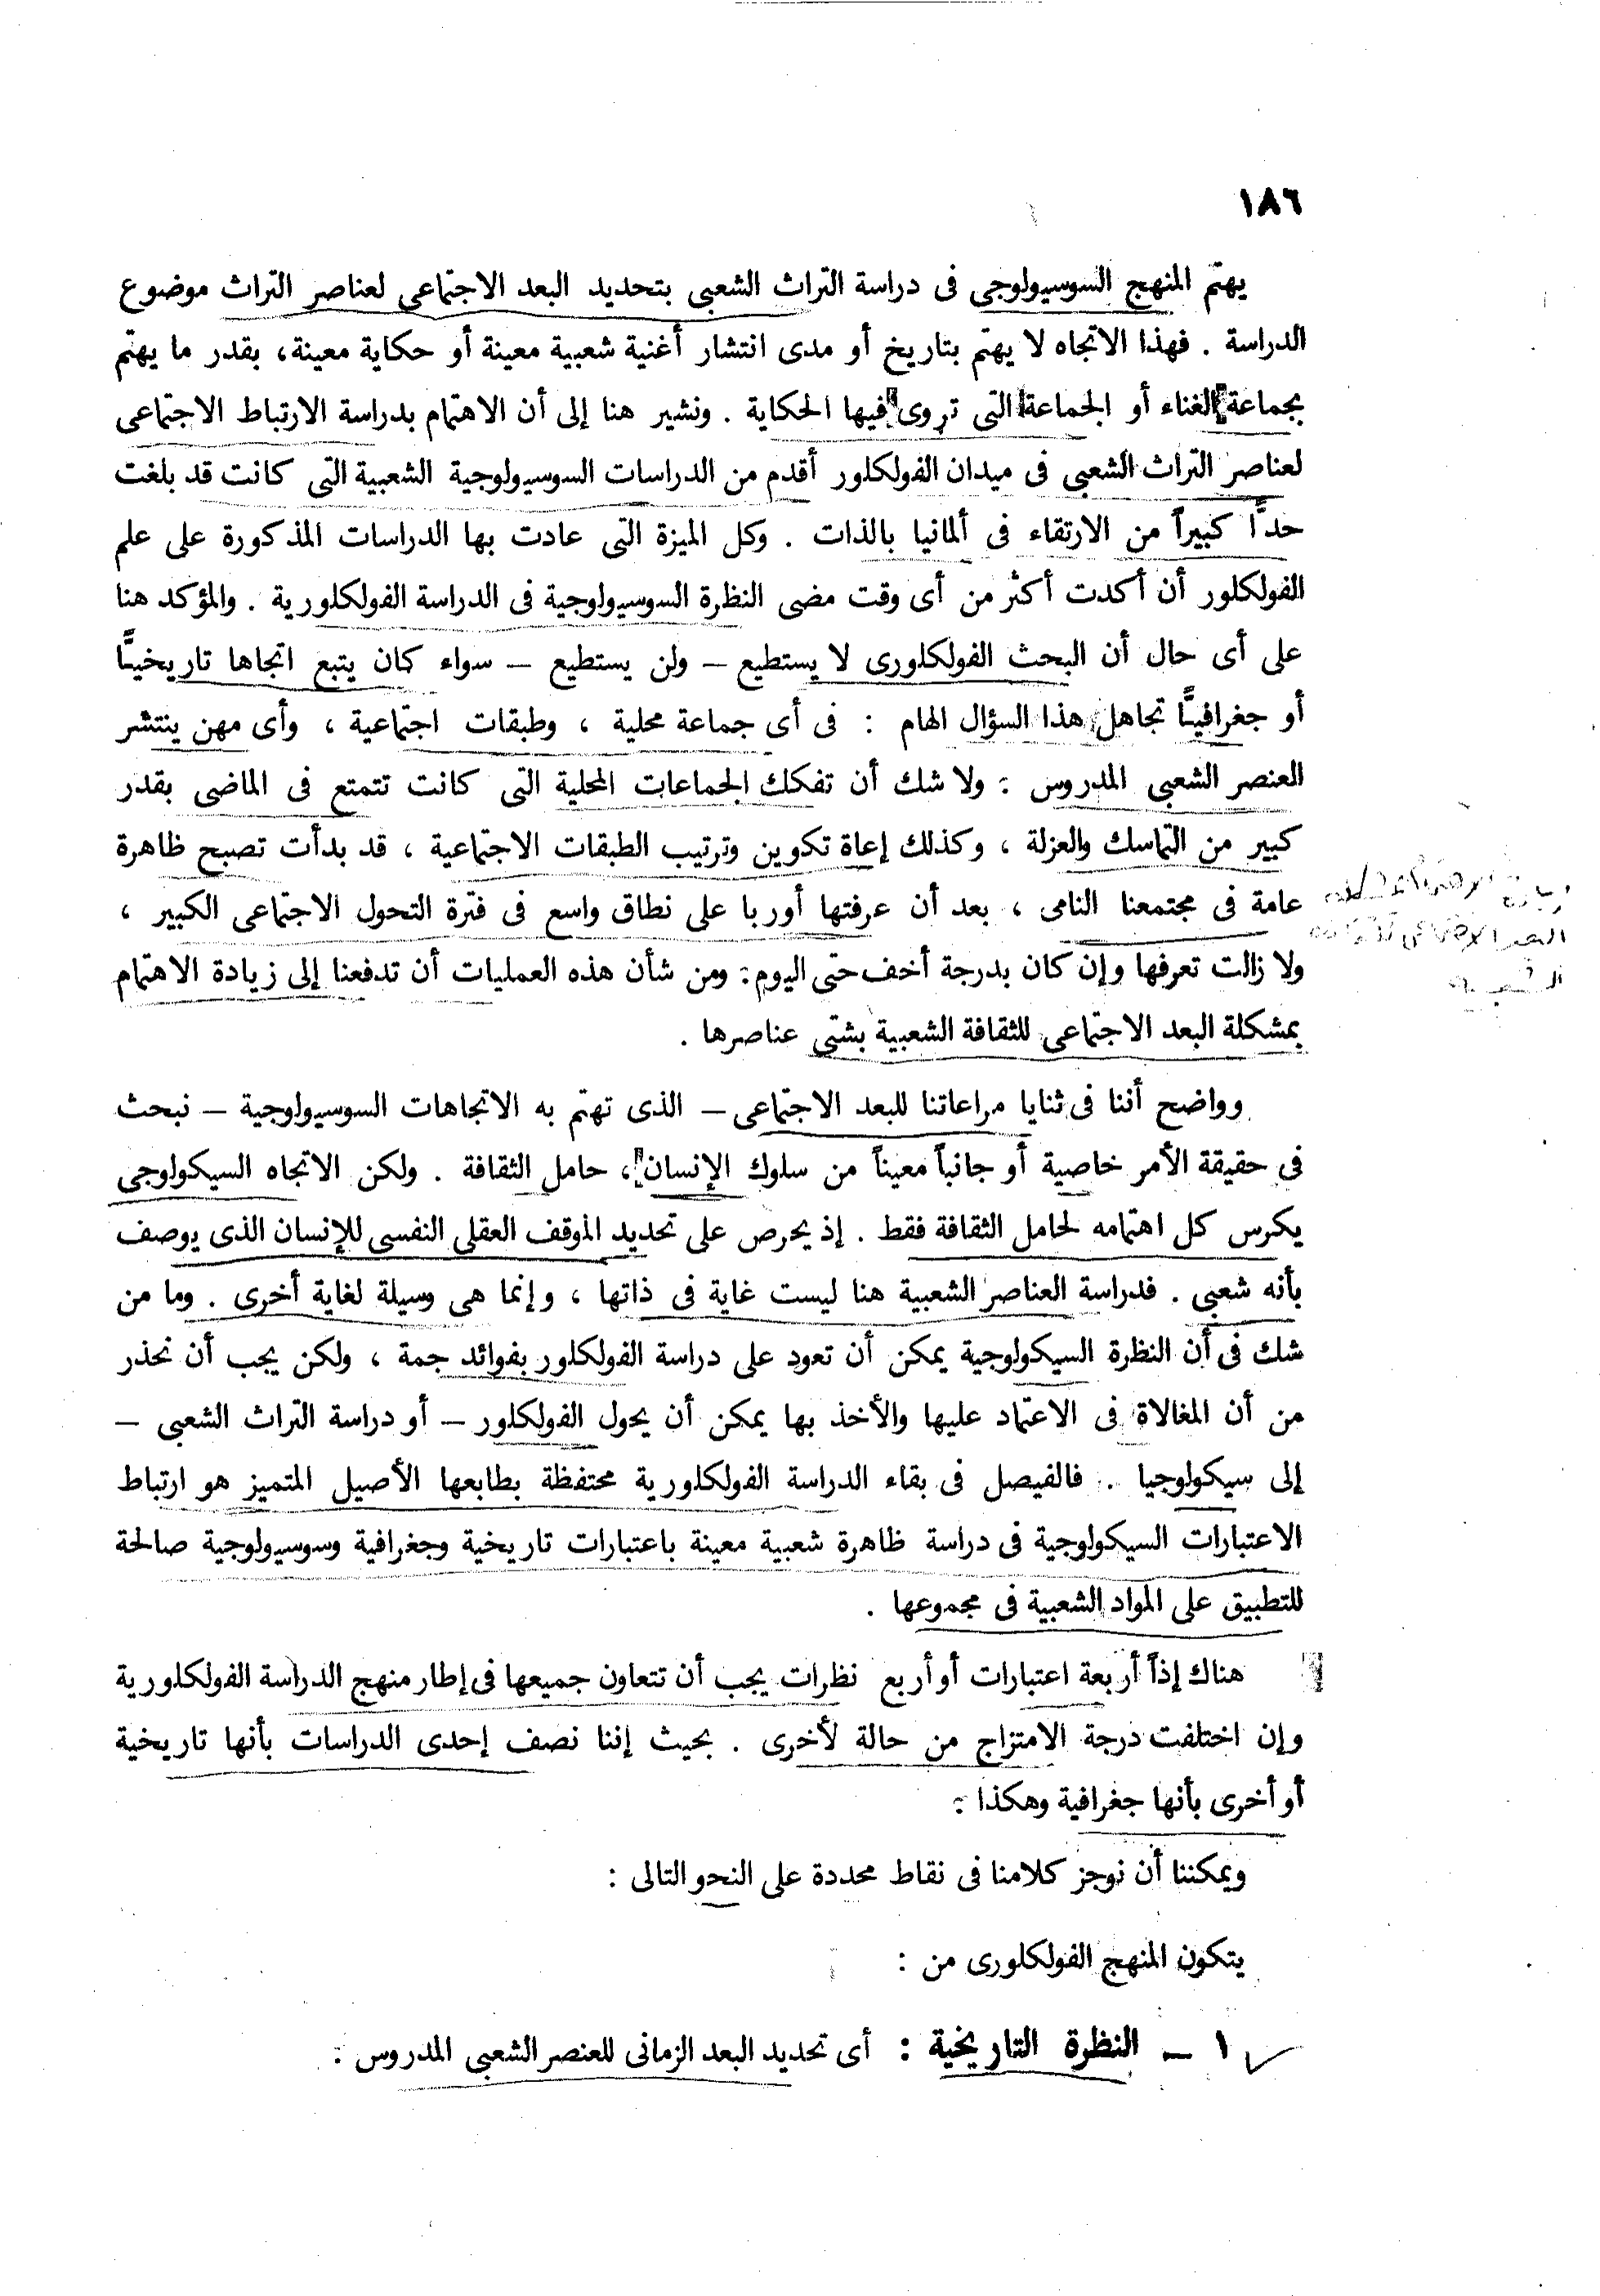 ١٨٦
يهتم المنهج السوسيولوجى فى دراسة التراث الشعبى بتحديد البعد الاجتماعى لعناصر التراث موضوع
الدراسة . فهذا الاتجاه لا يهتم بتاريخ أو مدى انتشار أغنية شعبية معينة أو حكاية معينة، بقدر ما يهتم
بجماعة الغناء أو الجماعة التى تروى فيها الحكاية . ونشير هنا إلى أن الاهتمام بدراسة الارتباط الاجتماعى
لعناصر التراث الشعبى فى ميدان الفولكلور أقدم من الدراسات السوسيولوجية الشعبية التى كانت قد بلغت
حدًّا كبيراً من الارتقاء فى ألمانيا بالذات . وكل الميزة التى عادت بها الدراسات المذكورة على علم
الفولكلور أن أكدت أكثر من أى وقت مضى النظرة السوسيولوجية فى الدراسة الفولكلورية . والمؤكد هنا
على أى حال أن البحث الفولكلورى لا يستطيع – ولن يستطيع – سواء كان يتبع اتجاها تاريخيًّا
أو جغرافيًّا تجاهل هذا السؤال الهام : فى أى جماعة محلية ، وطبقات اجتماعية ، وأى مهن ينتشر
العنصر الشعبى المدروس : ولا شك أن تفكك الجماعات المحلية التى كانت تتمتع فى الماضى بقدر
كبير من التماسك والعزلة ، وكذلك إعاة تكوين وترتيب الطبقات الاجتماعية ، قد بدأت تصبح ظاهرة
عامة فى مجتمعنا النامى ، بعد أن عرفتها أوربا على نطاق واسع فى فترة التحول الاجتماعى الكبير ،
ولا زالت تعرفها وإن كان بدرجة أخف حتى اليوم : ومن شأن هذه العمليات أن تدفعنا إلى زيادة الاهتمام
بمشكلة البعد الاجتماعى للثقافة الشعبية بشتى عناصرها .
وواضح أننا فى ثنايا مراعاتنا للبعد الاجتماعى – الذى تهتم به الاتجاهات السوسيولوجية – نبحث
فى حقيقة الأمر خاصية أو جانباً معيناً من سلوك الإنسان ، حامل الثقافة . ولكن الاتجاه السيكولوجى
يكرس كل اهتمامه لحامل الثقافة فقط . إذ يحرص على تحديد الموقف العقلى النفسى للإنسان الذى يوصف
بأنه شعبى . فدراسة العناصر الشعبية هنا ليست غاية فى ذاتها ، وإنما هى وسيلة لغاية أخرى . وما من
شك فى أن النظرة السيكولوجية يمكن أن تعود على دراسة الفولكلور بفوائد جمة ، ولكن يجب أن نحذر
من أن المغالاة فى الاعتماد عليها والأخذ بها يمكن أن يحول الفولكلور – أو دراسة التراث الشعبى –
إلى سيكولوجيا . فالفيصل فى بقاء الدراسة الفولكلورية محتفظة بطابعها الأصيل المتميز هو ارتباط
الاعتبارات السيكولوجية فى دراسة ظاهرة شعبية معينة باعتبارات تاريخية وجغرافية وسوسيولوجية صالحة
للتطبيق على المواد الشعبية فى مجموعها .
هناك إذاً أربعة اعتبارات أو أربع نظرات يجب أن تتعاون جميعها فى إطار منهج الدراسة الفولكلورية
وإن اختلفت درجة الامتزاج من حالة لأخرى . بحيث إننا نصف إحدى الدراسات بأنها تاريخية
أو أخرى بأنها جغرافية وهكذا :
ويمكننا أن نوجز كلامنا فى نقاط محددة على النحو التالى :
يتكون المنهج الفولكلورى من :
١ – النظرة التاريخية : أى تحديد البعد الزمانى للعنصر الشعبى المدروس :